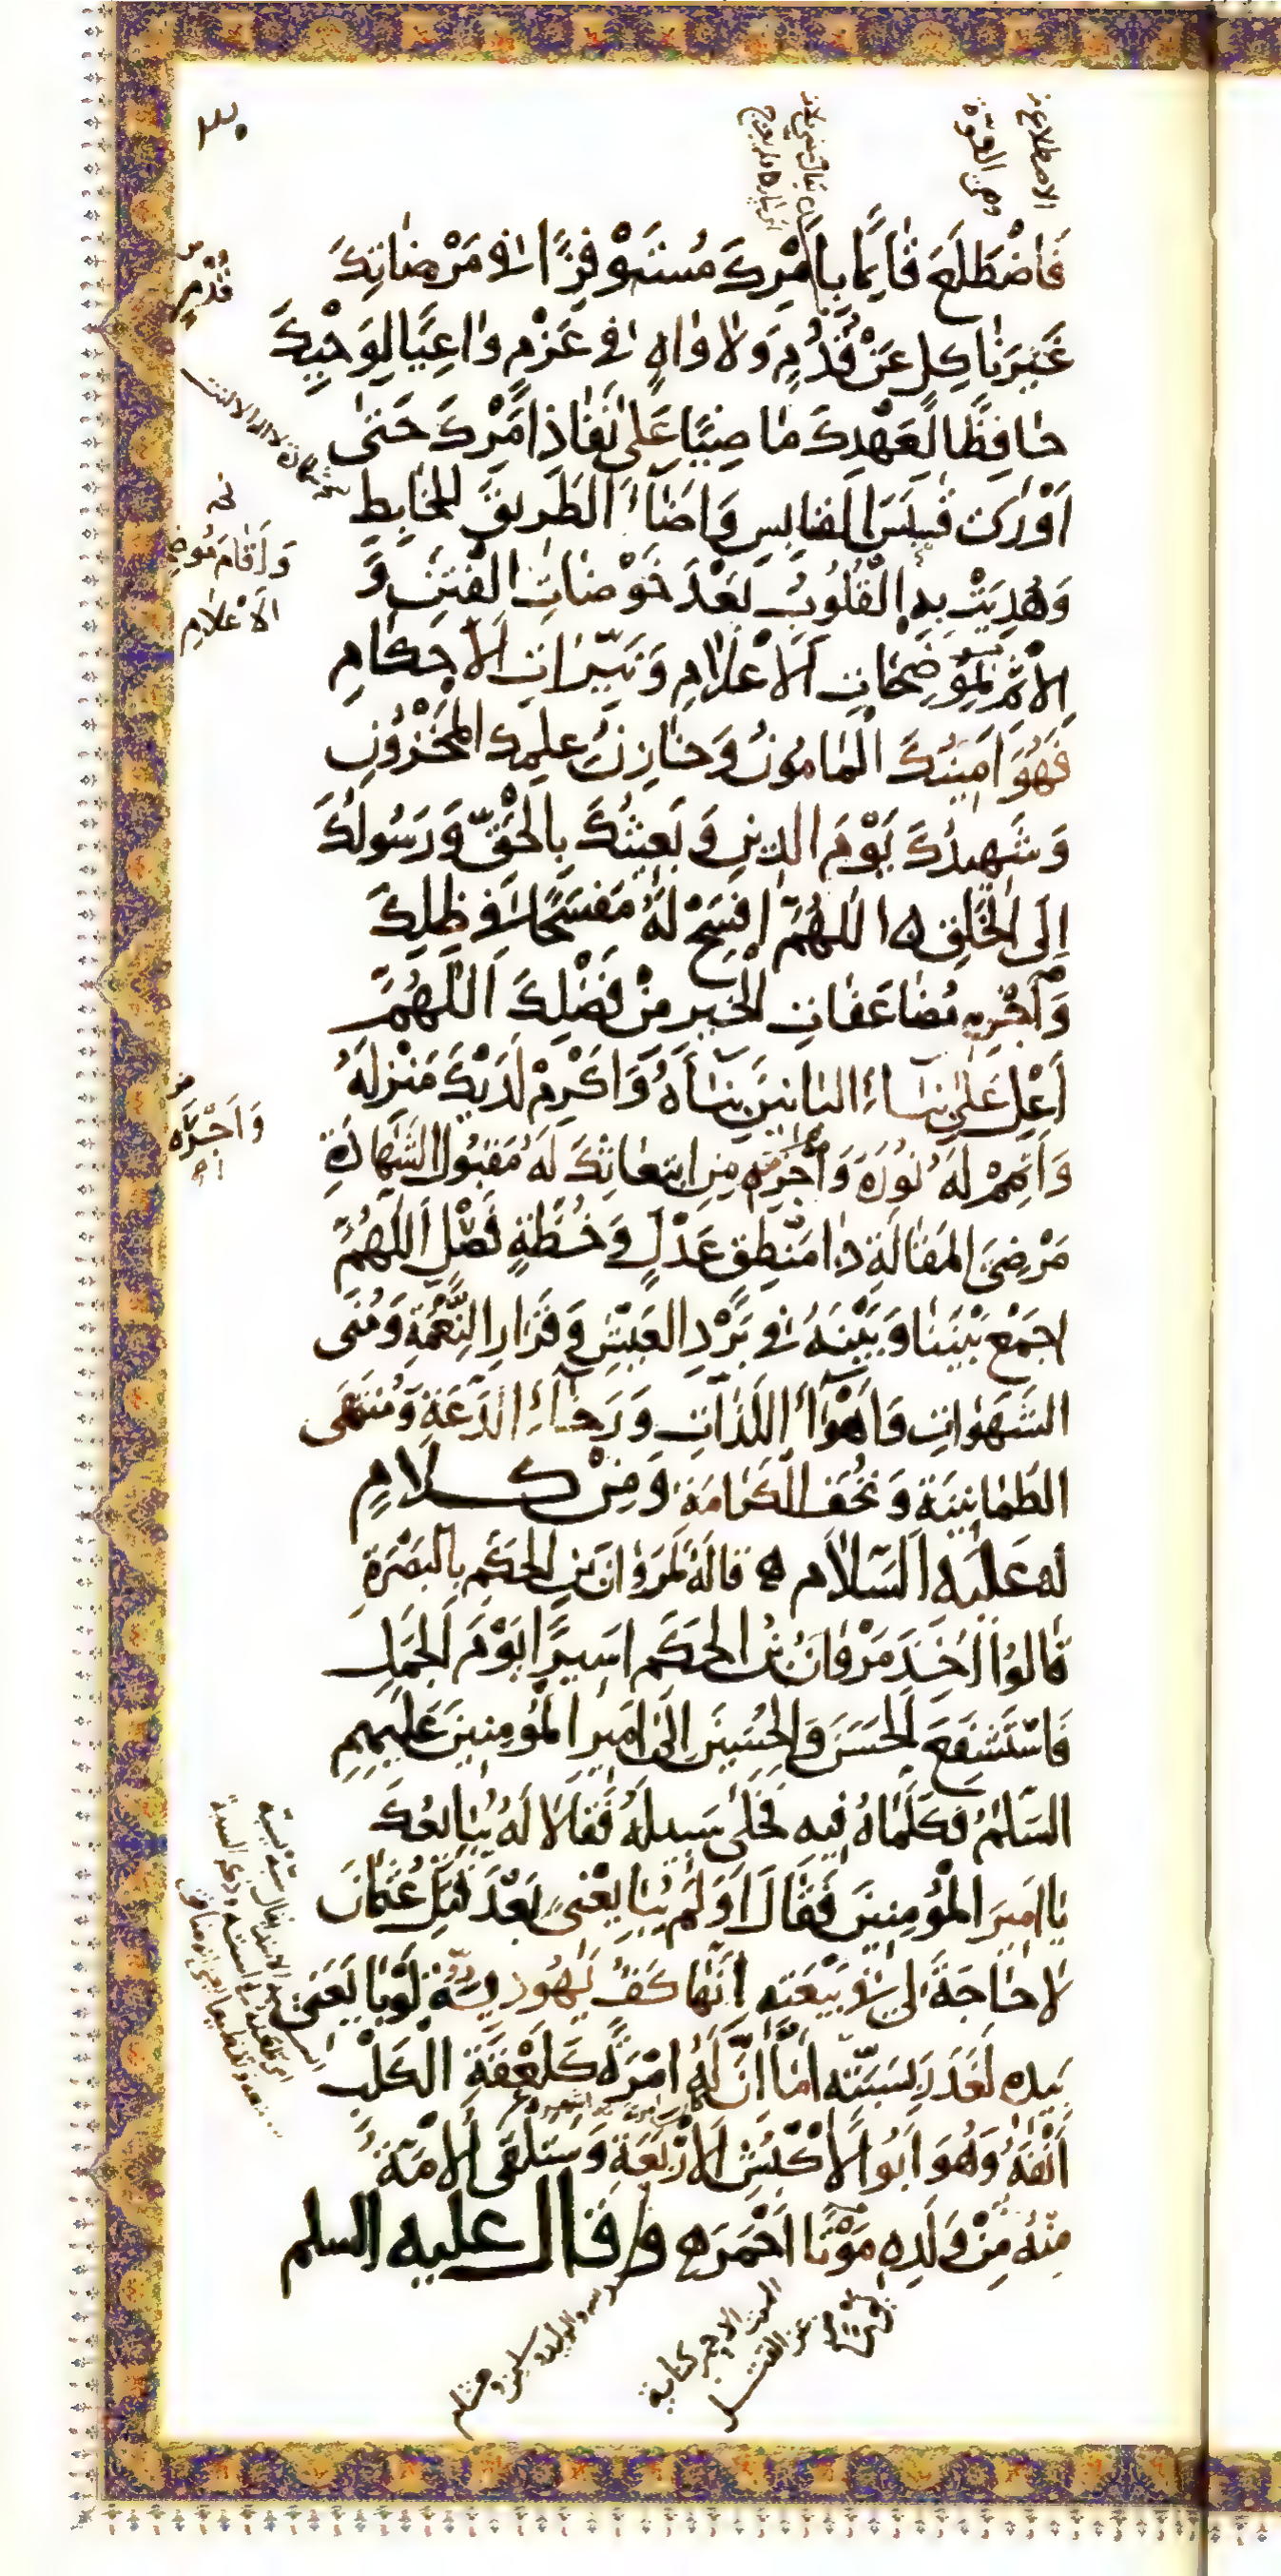 ٣٠
الاضطلاع من
وهي القوة
فَاضْطَلَعَ قَائِمًا بِأَمْرِكَ مُسْتَوْفِزًا فِي مَرْضَاتِكَ
غَيْرَ نَاكِلٍ عَنْ قُدُمٍ وَلَا وَاهٍ فِي عَزْمٍ وَاعِيًا لِوَحْيِكَ
حَافِظًا لِعَهْدِكَ مَاضِيًا عَلَى نَفَاذِ أَمْرِكَ حَتَّى
أَوْرَى قَبَسَ الْقَابِسِ وَأَضَاءَ الطَّرِيقَ لِلْخَابِطِ
وَهُدِيَتْ بِهِ الْقُلُوبُ بَعْدَ خَوْضَاتِ الْفِتَنِ وَ
الْإِثْمِ بِمُوضِحَاتِ الْأَعْلَامِ وَنَيِّرَاتِ الْأَحْكَامِ
فَهُوَ أَمِينُكَ الْمَأْمُونُ وَخَازِنُ عِلْمِكَ الْمَخْزُونِ
وَشَهِيدُكَ يَوْمَ الدِّينِ وَبَعِيثُكَ بِالْحَقِّ وَرَسُولُكَ
إِلَى الْخَلْقِ ۵ اللَّهُمَّ افْسَحْ لَهُ مَفْسَحًا فِي ظِلِّكَ
وَاجْزِهِ مُضَاعَفَاتِ الْخَيْرِ مِنْ فَضْلِكَ اللَّهُمَّ
أَعْلِ عَلَى بِنَاءِ الْبَانِينَ بِنَاءَهُ وَأَكْرِمْ لَدَيْكَ مَنْزِلَهُ
وَأَتْمِمْ لَهُ نُورَهُ وَاجْزِهِ مِنِ ابْتِعَاثِكَ لَهُ مَقْبُولَ الشَّهَادَةِ
مَرْضِيَّ الْمَقَالَةِ ذَا مَنْطِقٍ عَدْلٍ وَخُطَّةٍ فَصْلٍ اللَّهُمَّ
اجْمَعْ بَيْنَنَا وَبَيْنَهُ فِي بَرْدِ الْعَيْشِ وَقَرَارِ النِّعْمَةِ وَمُنَى
الشَّهَوَاتِ وَأَهْوَاءِ اللَّذَّاتِ وَرَخَاءِ الدَّعَةِ وَمُنْتَهَى
الطُّمَأْنِينَةِ وَتُحَفِ الْكَرَامَةِ وَمِنْ كَلَامٍ
لَهُ عَلَيْهِ السَّلَامُ ه قَالَهُ لِمَرْوَانَ بْنِ الْحَكَمِ بِالْبَصْرَةِ
قَالُوا أُخِذَ مَرْوَانُ بْنُ الْحَكَمِ أَسِيرًا يَوْمَ الْجَمَلِ
فَاسْتَشْفَعَ الْحَسَنَ وَالْحُسَيْنَ إِلَى أَمِيرِ الْمُؤْمِنِينَ عَلَيْهِمُ
السَّلَمُ فَكَلَّمَاهُ فِيهِ فَخَلَّى سَبِيلَهُ فَقَالَا لَهُ يُبَايِعُكَ
يَا أَمِيرَ الْمُؤْمِنِينَ فَقَالَ أَوَلَمْ يُبَايِعْنِي بَعْدَ قَتْلِ عُثْمَانَ
لَا حَاجَةَ لِي فِي بَيْعَتِهِ إِنَّهَا كَفٌّ يَهُودِيَّةٌ لَوْ بَايَعَنِي
بِيَدِهِ لَغَدَرَ بِسَبَّتِهِ أَمَا إِنَّ لَهُ إِمْرَةً كَلَعْقَةِ الْكَلْبِ
أَنْفَهُ وَهُوَ أَبُو الْأَكْبُشِ الْأَرْبَعَةِ وَسَتَلْقَى الْأُمَّةُ
مِنْهُ مِنْ وَلَدِهِ مَوْتًا أَحْمَرَ ه وَقَالَ عليه السلم
قُدُمٍ
وَأَقَامَ مُوضِحَاتِ
الْأَعْلَامِ
وَاجْزِهِ
الموت الاحمر كناية
عن القتل